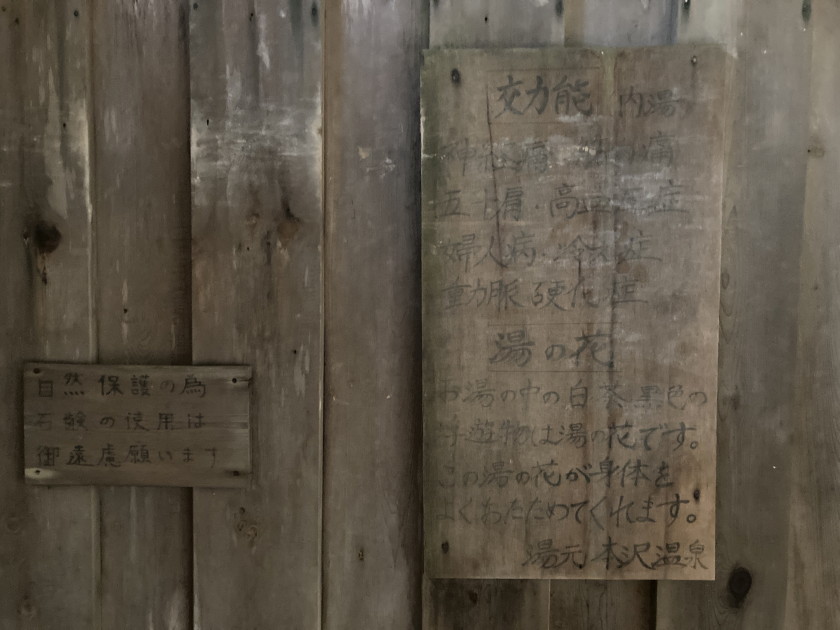 効能 内湯
神経痛 の痛
五十肩・高血圧症
婦人病・冷え症
動脈硬化症
湯の花
お湯の中の白茶黒色の
浮遊物は湯の花です。
この湯の花が身体を
よくあたためてくれます。
湯元 本沢温泉
自然保護の為
石験の使用は
御遠慮願います